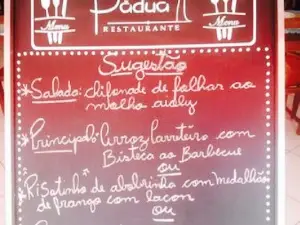 Pádua
RESTAURANTE
Menu
Menu
Sugestão
*Salada: clifonade de folhas ao
molho aidly
*Principal: Arroz Carreteiro com
Bisteca ao Barbecue
ou
*Risotinho de abobrinha com medalhão
de frango com bacon
ou